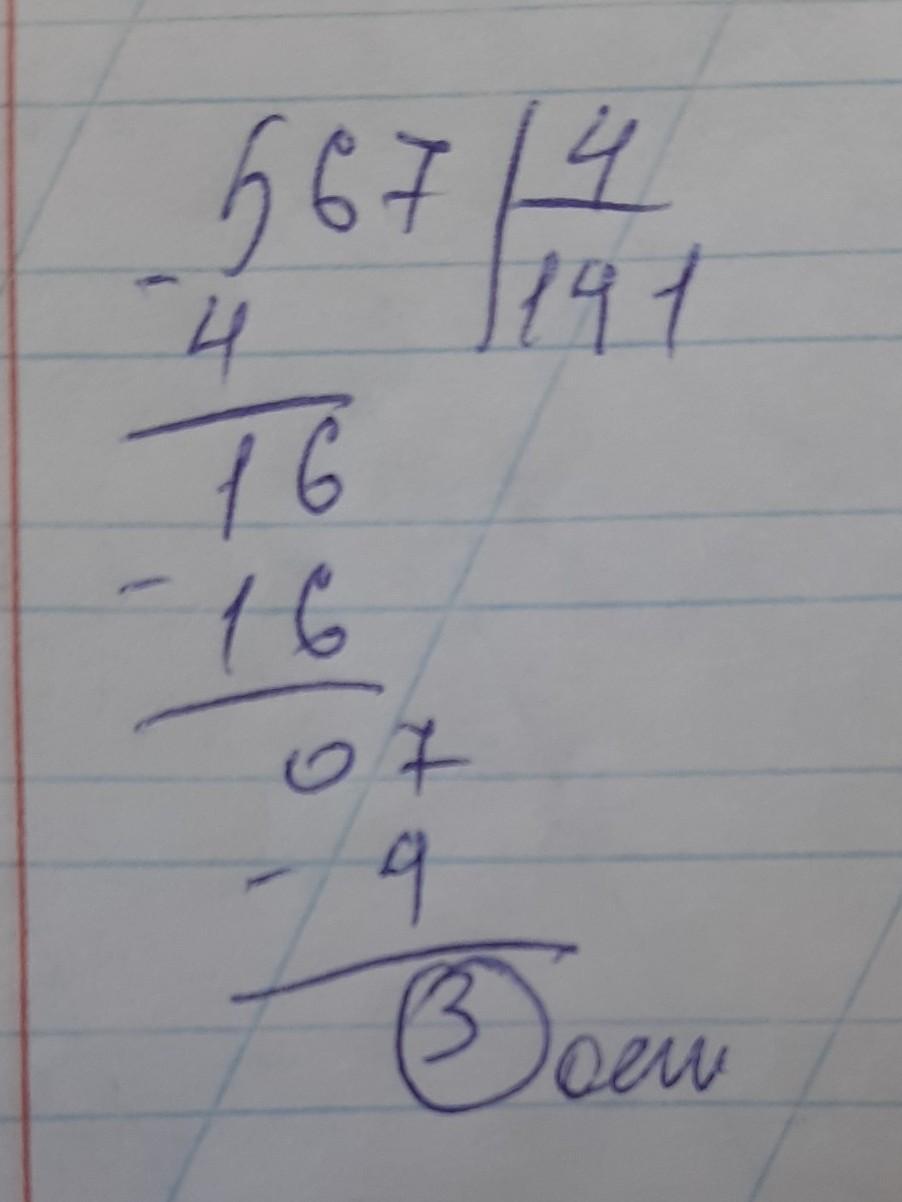 567 4
- 141
4
16
- 16
07
- 4
3 ост